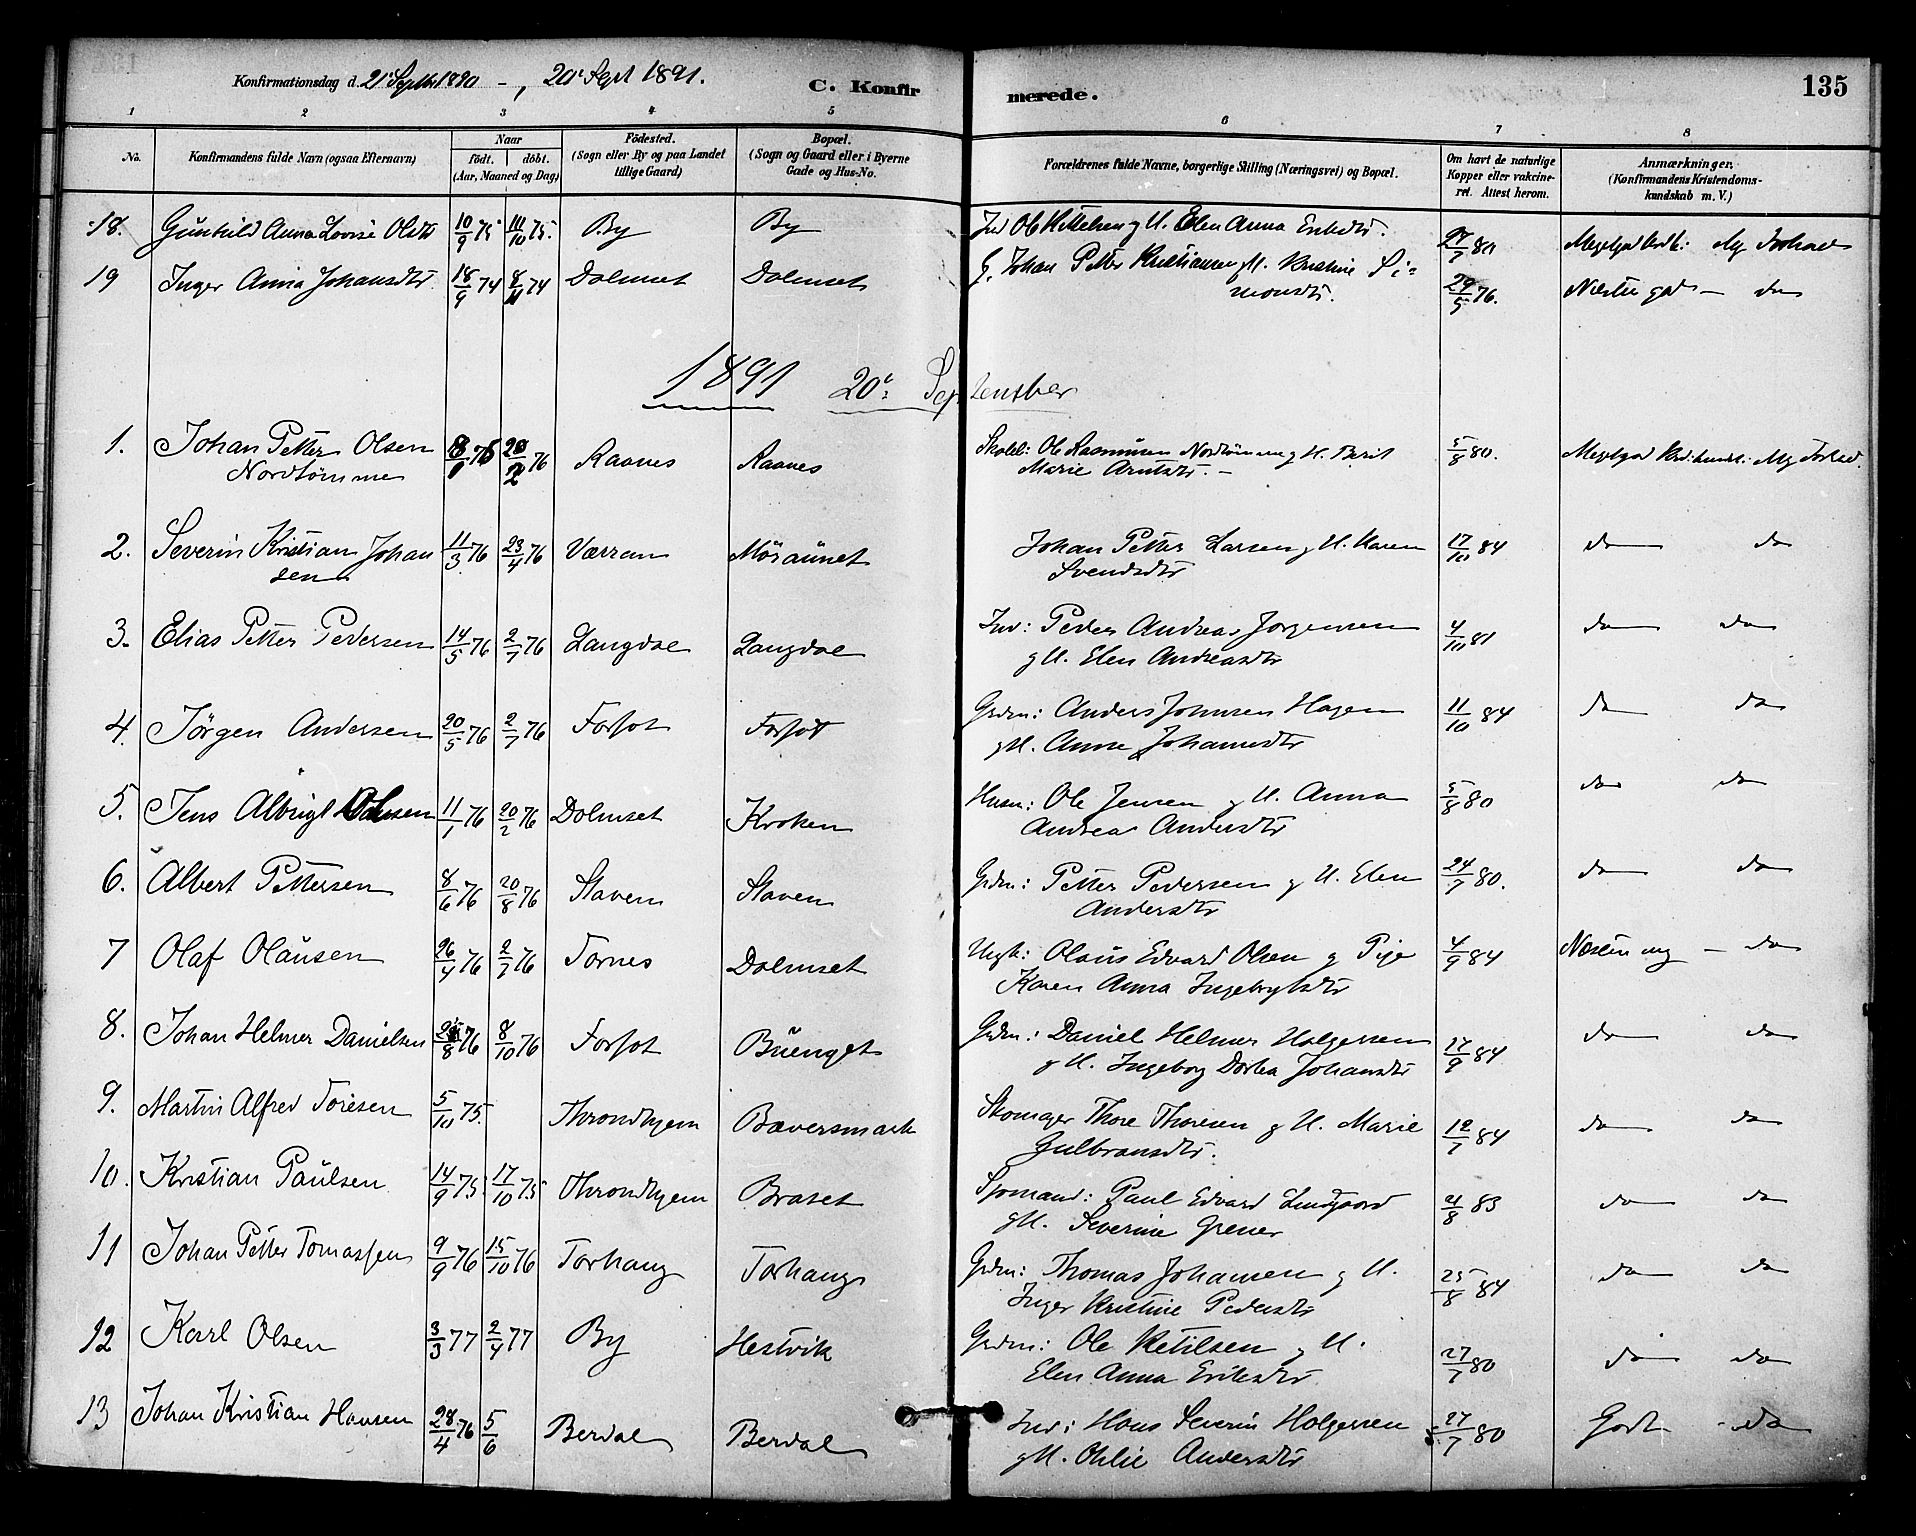 Konfirmationsdag d. 21 Septbr 1890 - , 20 Sept 1891.
C. Konfirmerede.
135
1 2 3 4 5 6 7 8
No.
Konfirmandens fulde Navn (ogsaa Efternavn)
Naar
födt. döbt.
(Aar, Maaned og Dag)
Födested.
(Sogn eller By og paa Landet
tillige Gaard)
Bopæl.
(Sogn og Gaard eller i Byerne
Gade og Hus-No.
Forældrenes fulde Navne, borgerlige Stilling (Næringsvei) og Bopæl.
Om havt de naturlige
Kopper eller vakcine-
ret. Attest herom.
Anmærkninger.
(Konfirmandens Kristendoms-
kundskab m. V.)
18. Gunhild Anna Lovise Olsdtr 10/9 75 10/10 75. By By Ind Ole Kettelsen g H. Elen Anna Eriksdtr. 27/7 80
19 Inger Anna Johansdtr. 18/9 74 8/11 74 Dolmset Dolmset G. Johan Petter Kristiansen g H. Kristine Si-
monsdtr. 29/5 76. do
1891 20. September
1. Johan Petter Olsen
Nordtømme 20/2 76 Raanes Raanes Skolel: Ole Rasmusen Nordtømme g H. Berit
Marie Arntsdtr. - 5/8 80.
2. Severin Kristian Johan
sen 11/3 76 23/4 76 Værran Möraunet Johan Petter Larsen g H. Karen
Svendsdtr 17/10 84 do do
3. Elias Petter Pedersen 14/5 76 2/7 76 Langdal Langdal Ind: Peder Andreas Jørgensen
g H. Elen Andreasdtr 4/10 81 do do
4. Jörgen Andersen 20/5 76 2/7 76 Forsot Forsot Grdm: Anders Johnsen Hagen
g H. Anne Johannesdtr 11/10 84 do do
5. Jens Albrigt Olsen 11/1 76 20/2 76 Dolmset Kroken Husm: Ole Jensen g H. Anna
Andrea Andersdtr 5/8 80 do do
6. Albert Pettersen 8/6 76 20/8 76 Staven Staven Grdm: Petter Pedersen g H. Elen
Andersdtr 24/7 80. do do
7 Olaf Olausen 26/4 76 2/7 76 Tornes Dolmset Ungk: Olaus Edvard Olsen g Pige
Karen Anna Ingebrigtsdtr 4/9 84 - do
8. Johan Helmer Danielsen 8/10 76 Forsot Buenget Grdm: Daniel Helmer Holgersen
g H. Ingeborg Dortea Johansdtr 17/9 84 do do
9. Martin Alfred Toresen 5/10 75. Throndhjem Bæversmark Skomager Thore Thoresen g H. Marie
Gulbransdtr. 12/7 84 do do
10. Kristian Paulsen 14/9 75 17/10 75 Throndhjem Braset Sjømand: Paul Edvard Lundgaard
g H. Severine Grener 21/8 83 do do
11 Johan Petter Tomassen 9/9 76 15/10 76 Torhaug Torhaug Grdm: Thomas Johansen g H.
Inger Kristine Pedersdtr 25/8 84 do do
12 Karl Olsen 3/3 77 2/4 77 By Hestvik Grdm: Ole Ketilsen g H.
Elen Anna Eriksdtr 27/7 80 do do
13 Johan Kristian Hansen 28/4 76 5/6 Berdal Berdal Ind: Hans Severin Holgersen
g H. Ohlie Andersdtr 27/7 80 Godt - do